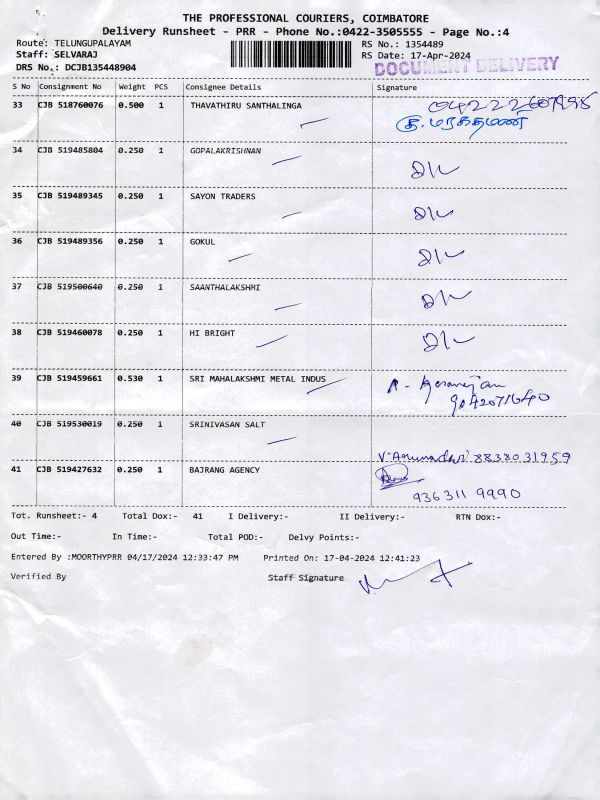 THE PROFESSIONAL COURIERS, COIMBATORE
Delivery Runsheet - PRR - Phone No.:0422-3505555 - Page No.:4
Route: TELUNGUPALAYAM RS No.: 1354489
Staff: SELVARAJ RS Date: 17-Apr-2024
DRS No.: DCJB135448904 DOCUMENT DELIVERY
S No Consignment No Weight PCS Consignee Details Signature
33 CJB 518760076 0.500 1 THAVATHIRU SANTHALINGA
34 CJB 519485804 0.250 1 GOPALAKRISHNAN
35 CJB 519489345 0.250 1 SAYON TRADERS
36 CJB 519489356 0.250 1 GOKUL
37 CJB 519500640 0.250 1 SAANTHALAKSHMI
38 CJB 519460078 0.250 1 HI BRIGHT
39 CJB 519459661 0.530 1 SRI MAHALAKSHMI METAL INDUS
9042071640
40 CJB 519530019 0.250 1 SRINIVASAN SALT
8838031959
41 CJB 519427632 0.250 1 BAJRANG AGENCY
936311 9990
Tot. Runsheet:- 4 Total Dox:- 41 I Delivery:- II Delivery:- RTN Dox:-
Out Time:- In Time:- Total POD:- Delvy Points:-
Entered By :MOORTHYPRR 04/17/2024 12:33:47 PM Printed On: 17-04-2024 12:41:23
Verified By Staff Signature